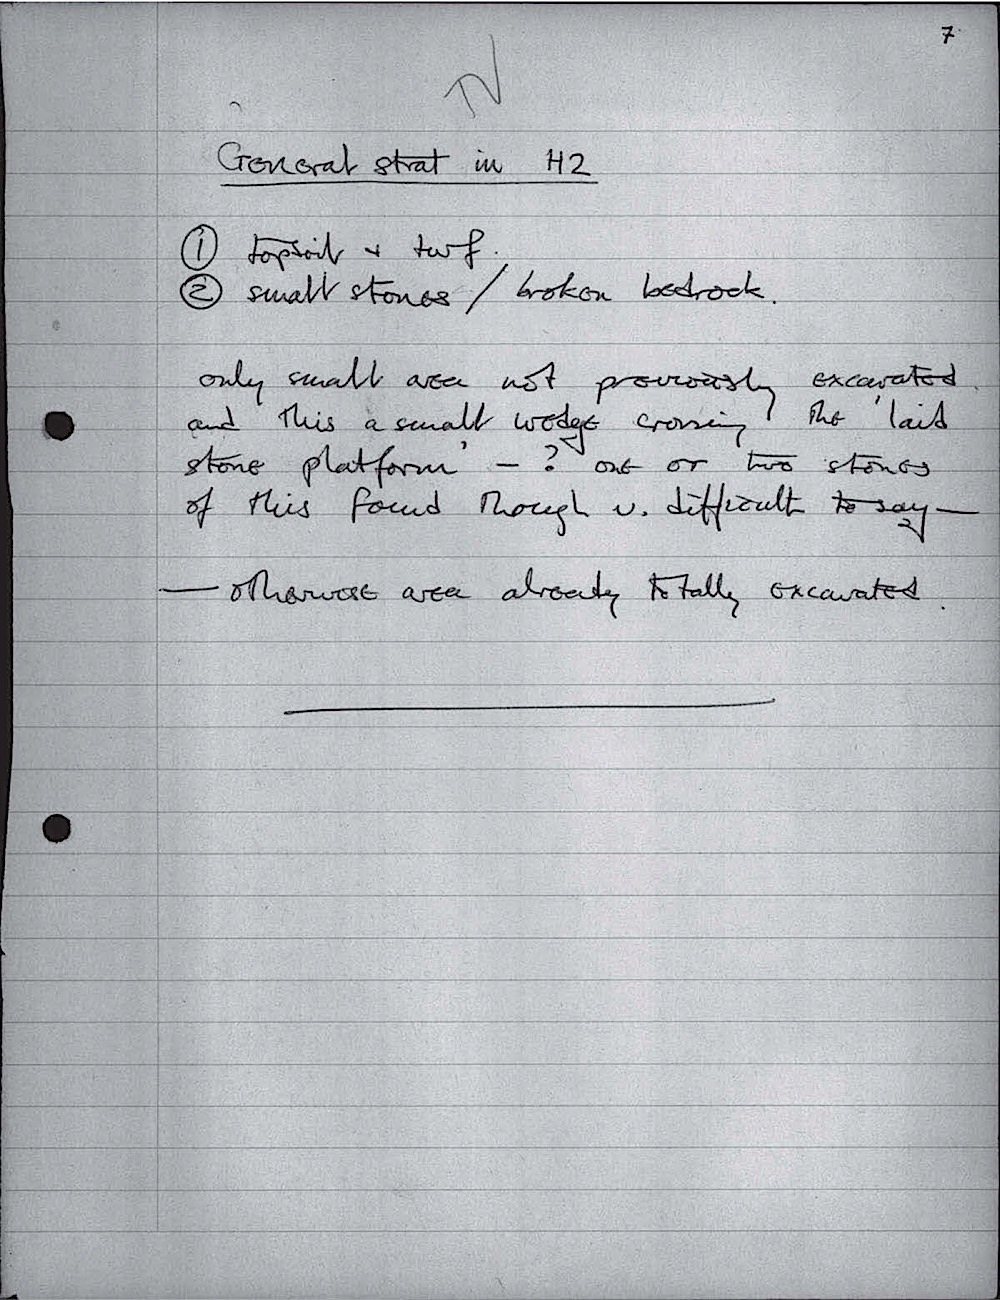 7
General strat in H2
① topsoil + turf.
② small stones / broken bedrock.
only small area not previously excavated
and this a small wedge crossing the 'laid
stone platform' – ? one or two stones
of this found though v. difficult to say —
— otherwise area already totally excavated.